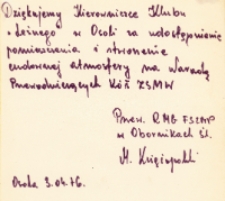 Dziękujemy Kierowniczce Klubu
Leśnego w Osoli za udostępnienie
pomieszczenia i stworzenie
cudownej atmosfery na Naradę
Przewodniczących Kół ZSMW
Przew. RMG FSZMP
w Obornikach Śl.
M. Księżopolski
Osola 3.04.76.